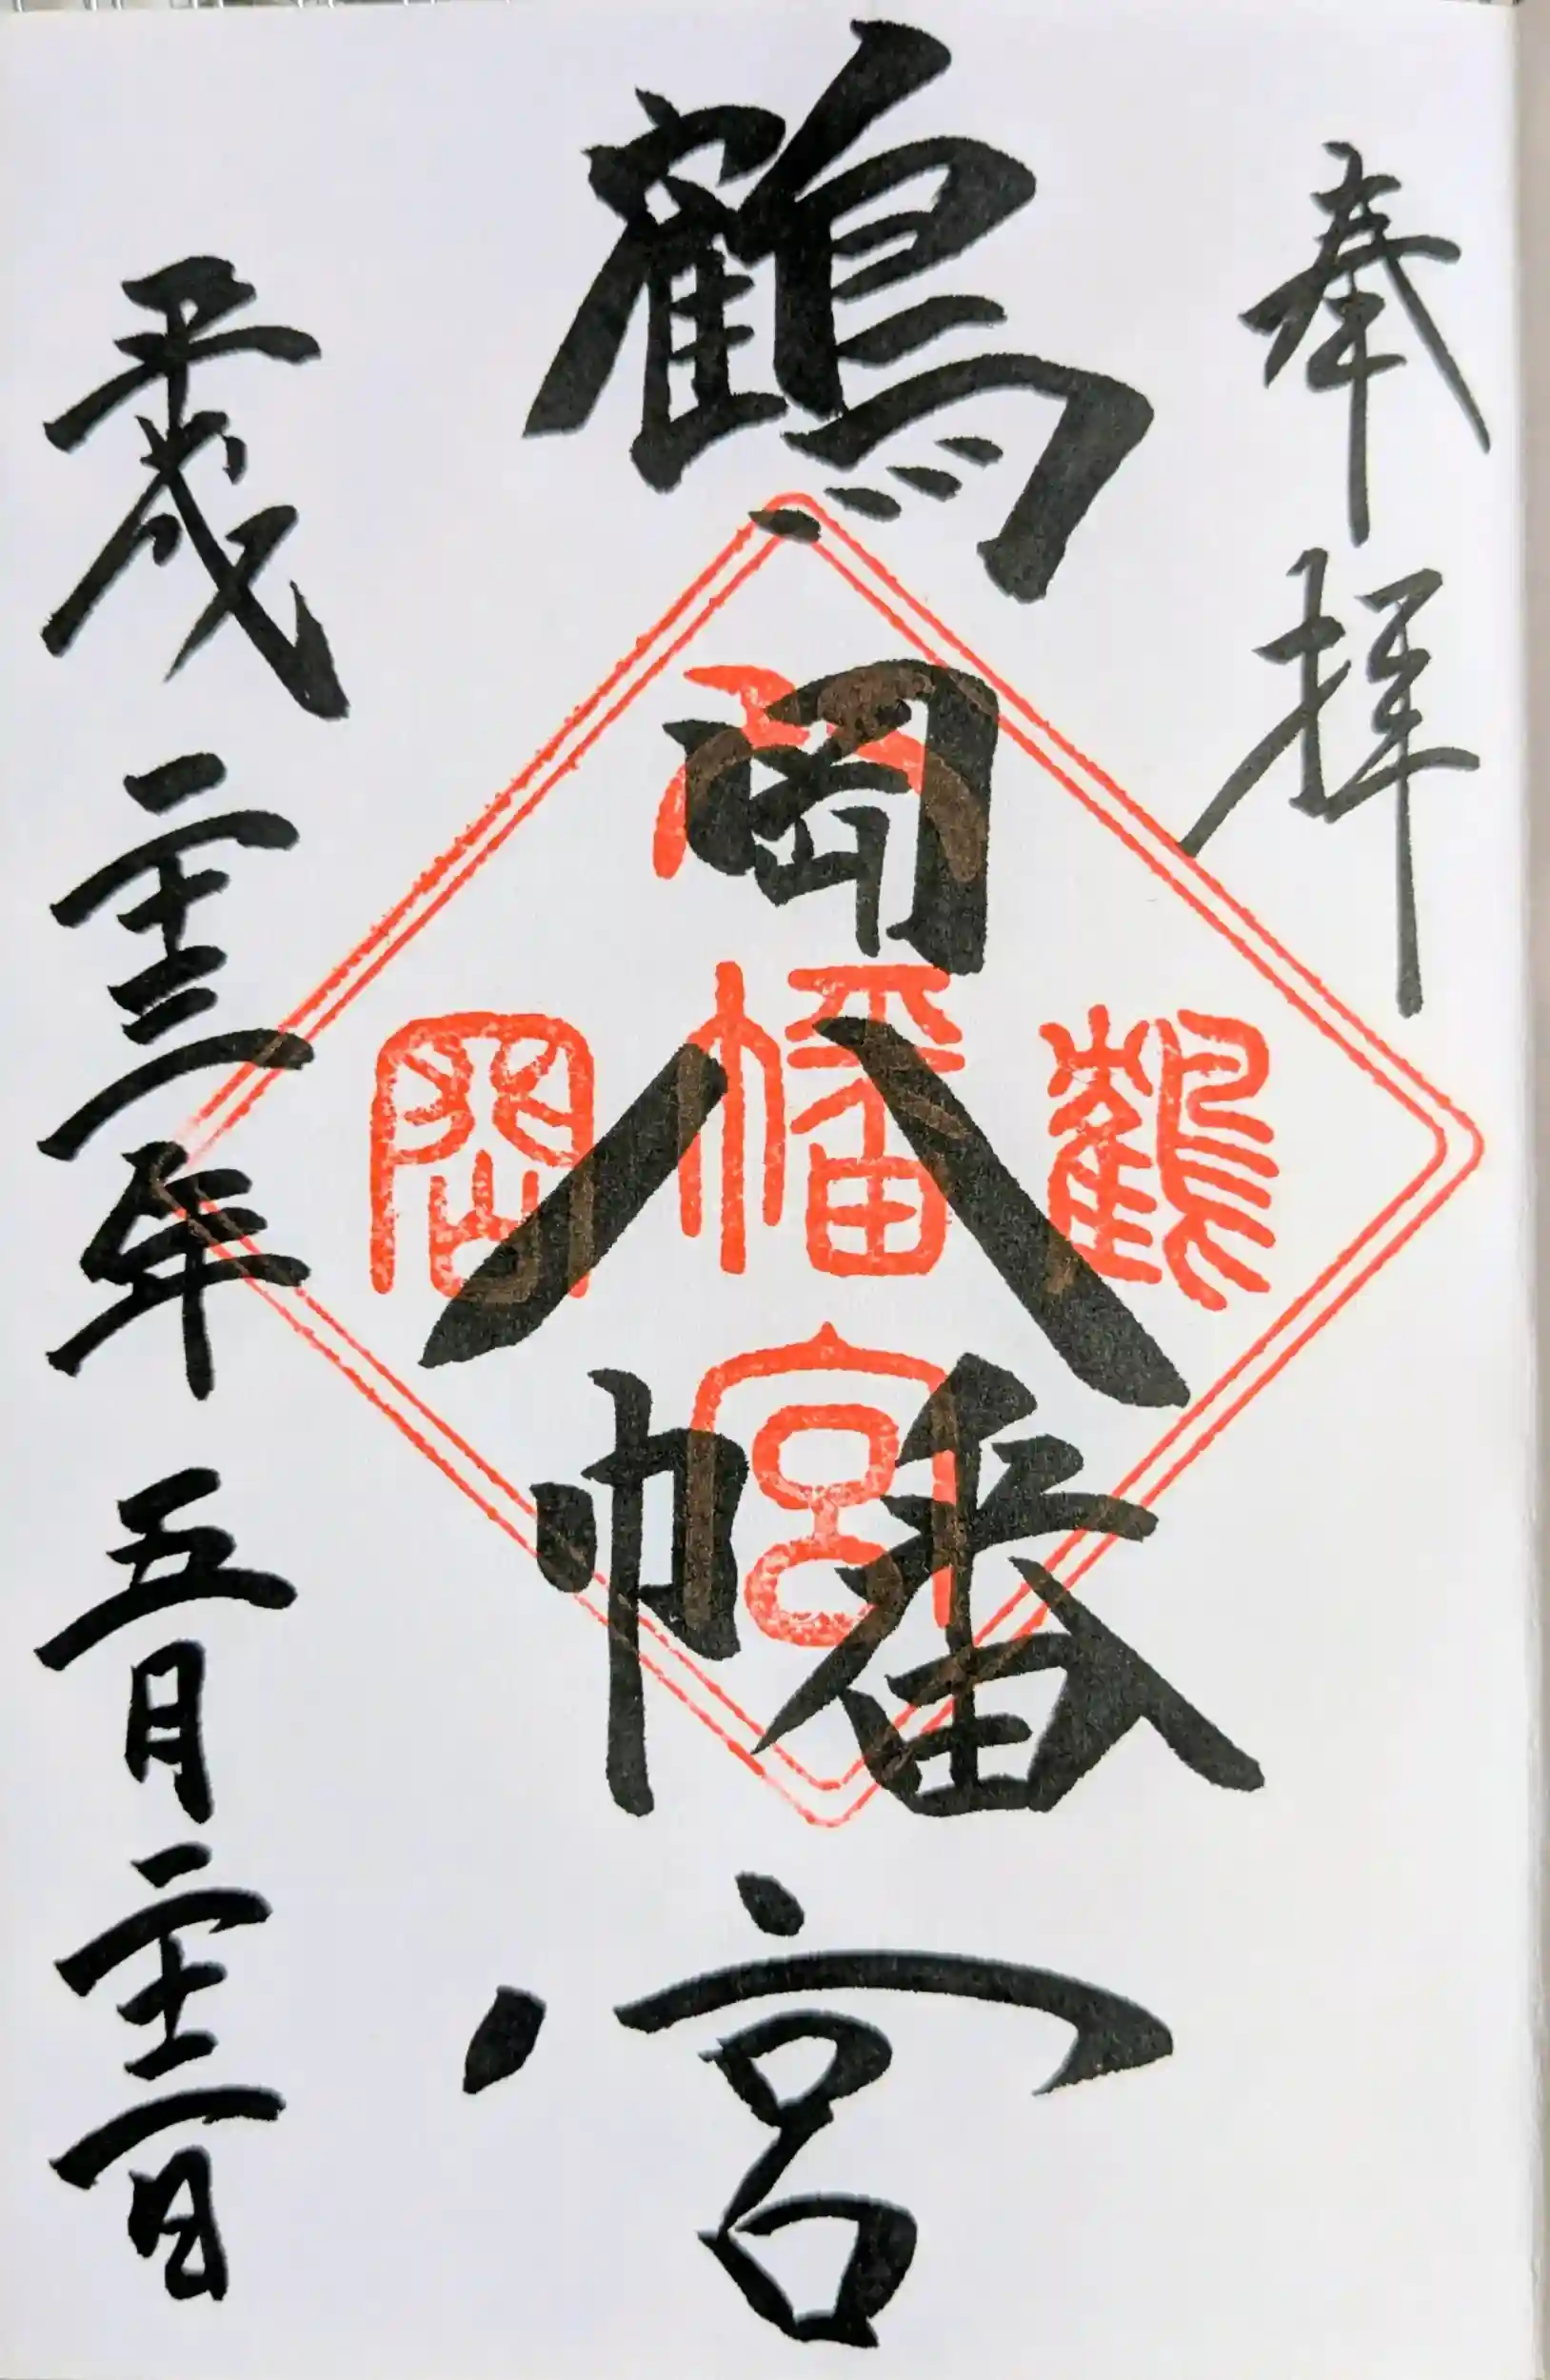 奉拝
鶴岡八幡宮
平成二十三年五月二十二日
鶴岡八幡宮